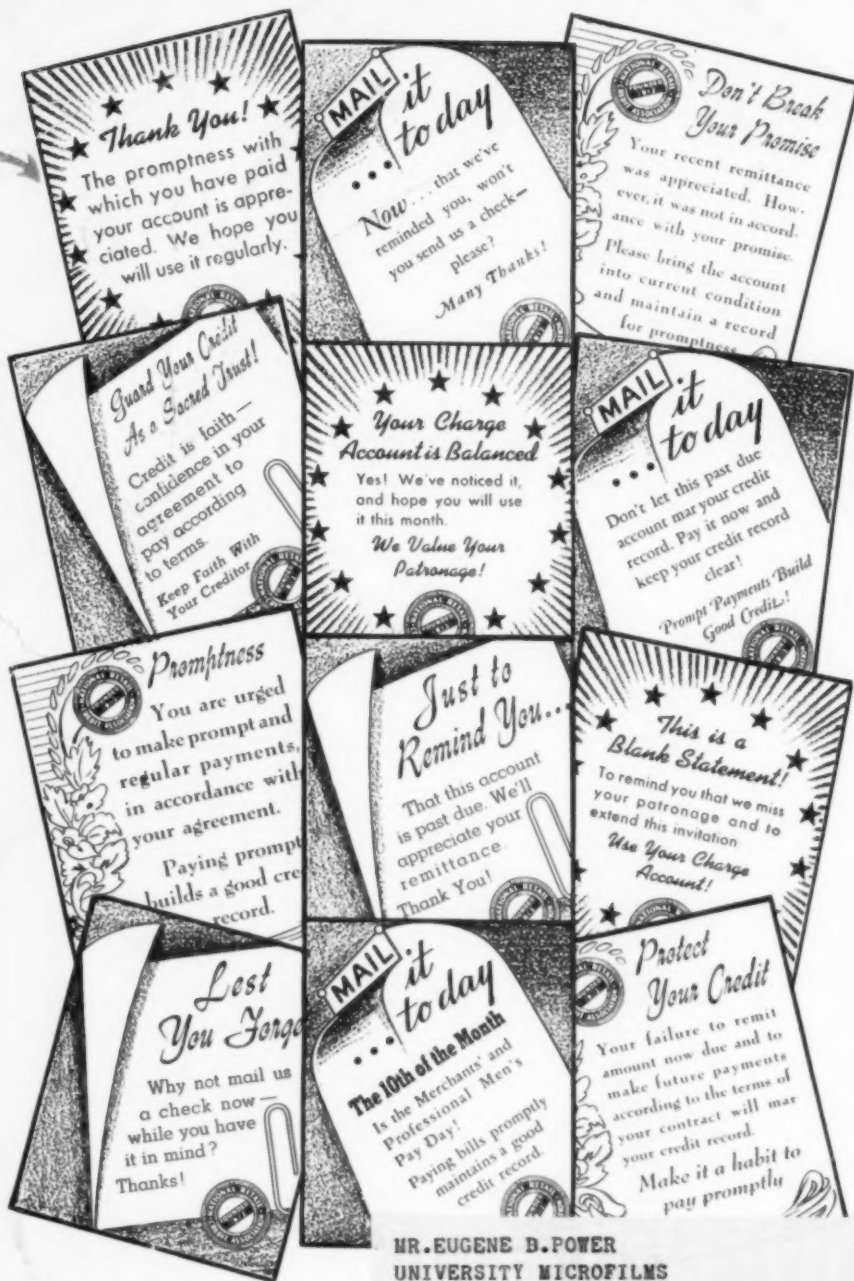 Thank You!
The promptness with
which you have paid
your account is appre-
ciated. We hope you
will use it regularly.
MAIL it
today
...
Now ... that we've
reminded you, won't
you send us a check—
please?
Many Thanks!
Don't Break
Your Promise
Your recent remittance
was appreciated. How-
ever, it was not in accord-
ance with your promise.
Please bring the account
into current condition
and maintain a record
for promptness
Guard Your Credit
As a Sacred Trust!
Credit is faith—
confidence in your
agreement to
pay according
to terms.
Keep Faith With
Your Creditor
Your Charge
Account is Balanced
Yes! We've noticed it,
and hope you will use
it this month.
We Value Your
Patronage!
MAIL it
today
...
Don't let this past due
account mar your credit
record. Pay it now and
keep your credit record
clear!
Prompt Payments Build
Good Credit!
Promptness
You are urged
to make prompt and
regular payments,
in accordance with
your agreement.
Paying prompt
builds a good cre
record.
Just to
Remind You...
That this account
is past due. We'll
appreciate your
remittance.
Thank You!
This is a
Blank Statement!
To remind you that we miss
your patronage and to
extend this invitation
Use Your Charge
Account!
Lest
You Forge
Why not mail us
a check now—
while you have
it in mind?
Thanks!
MAIL it
today
...
The 10th of the Month
Is the Merchants' and
Professional Men's
Pay Day!
Paying bills promptly
maintains a good
credit record.
Protect
Your Credit
Your failure to remit
amount now due and to
make future payments
according to the terms of
your contract will mar
your credit record.
Make it a habit to
pay promptly
MR.EUGENE B.POWER
UNIVERSITY MICROFILMS